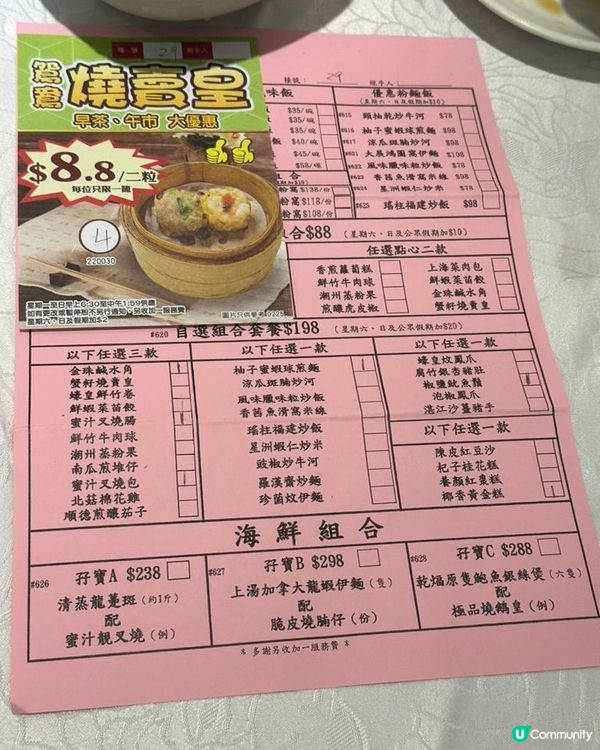 檯號 29 經手人
鴛鴦燒賣皇
早茶、午市 大優惠
$8.8/二粒
每位只限一籠
4
220030
星期一至日早上6:30至中午1:59供應
如有更改或暫停恕不另行通知,另收加一服務費
星期六、日及假期加$2
圖片只供參考 0225
檯號: 29 經手人:
味飯
$35/碗
$35/碗
$35/碗
$40/碗
$45/碗
$58/碗
粉窩 $138/份
粉窩 $118/份
粉窩 $108/份
優惠粉麵飯
(星期六、日及假期加$10)
#615 頭抽乾炒牛河 $78
#616 柚子蜜蝦球煎麵 $98
#617 涼瓜斑腩炒河 $98
#621 大展鴻圖窩伊麵 $108
#622 風味臘味粒炒飯 $78
#623 香茜魚滑窩米線 $98
#624 星洲蝦仁炒米 $78
#625 瑤柱福建炒飯 $98
組合$88 (星期六、日及公眾假期加$10)
任選點心二款
香煎蘿蔔糕 上海菜肉包
鮮竹牛肉球 鮮蝦菜苗餃
潮州蒸粉果 金珠鹹水角
煎釀虎皮椒 蟹籽燒賣皇
#620 自選組合套餐$198 (星期六、日及公眾假期加$20)
以下任選三款
金珠鹹水角
蟹籽燒賣皇
蠔皇鮮竹卷
鮮蝦菜苗餃
蜜汁叉燒腸
鮮竹牛肉球
潮州蒸粉果
南瓜煎堆仔
蜜汁叉燒包
北菇棉花雞
順德煎釀茄子
以下任選一款
柚子蜜蝦球煎麵
涼瓜斑腩炒河
風味臘味粒炒飯
香茜魚滑窩米線
瑤柱福建炒飯
星洲蝦仁炒米
豉椒炒牛河
羅漢齋炒麵
珍菌炆伊麵
以下任選一款
蠔皇炆鳳爪
腐竹銀杏豬肚
椒鹽魷魚鬚
泡椒鳳爪
湛江沙薑豬手
以下任選一款
陳皮紅豆沙
杞子桂花糕
養顏紅棗糕
椰香黃金糕
海鮮組合
#626 孖寶A $238
清蒸龍躉斑(約1斤)
配
蜜汁靚叉燒(例)
#627 孖寶B $298
上湯加拿大龍蝦伊麵(隻)
配
脆皮燒腩仔(份)
#628 孖寶C $288
乾煏原隻鮑魚銀絲煲(六隻)
配
極品燒鵪皇(例)
*多謝另收加一服務費*
U Community